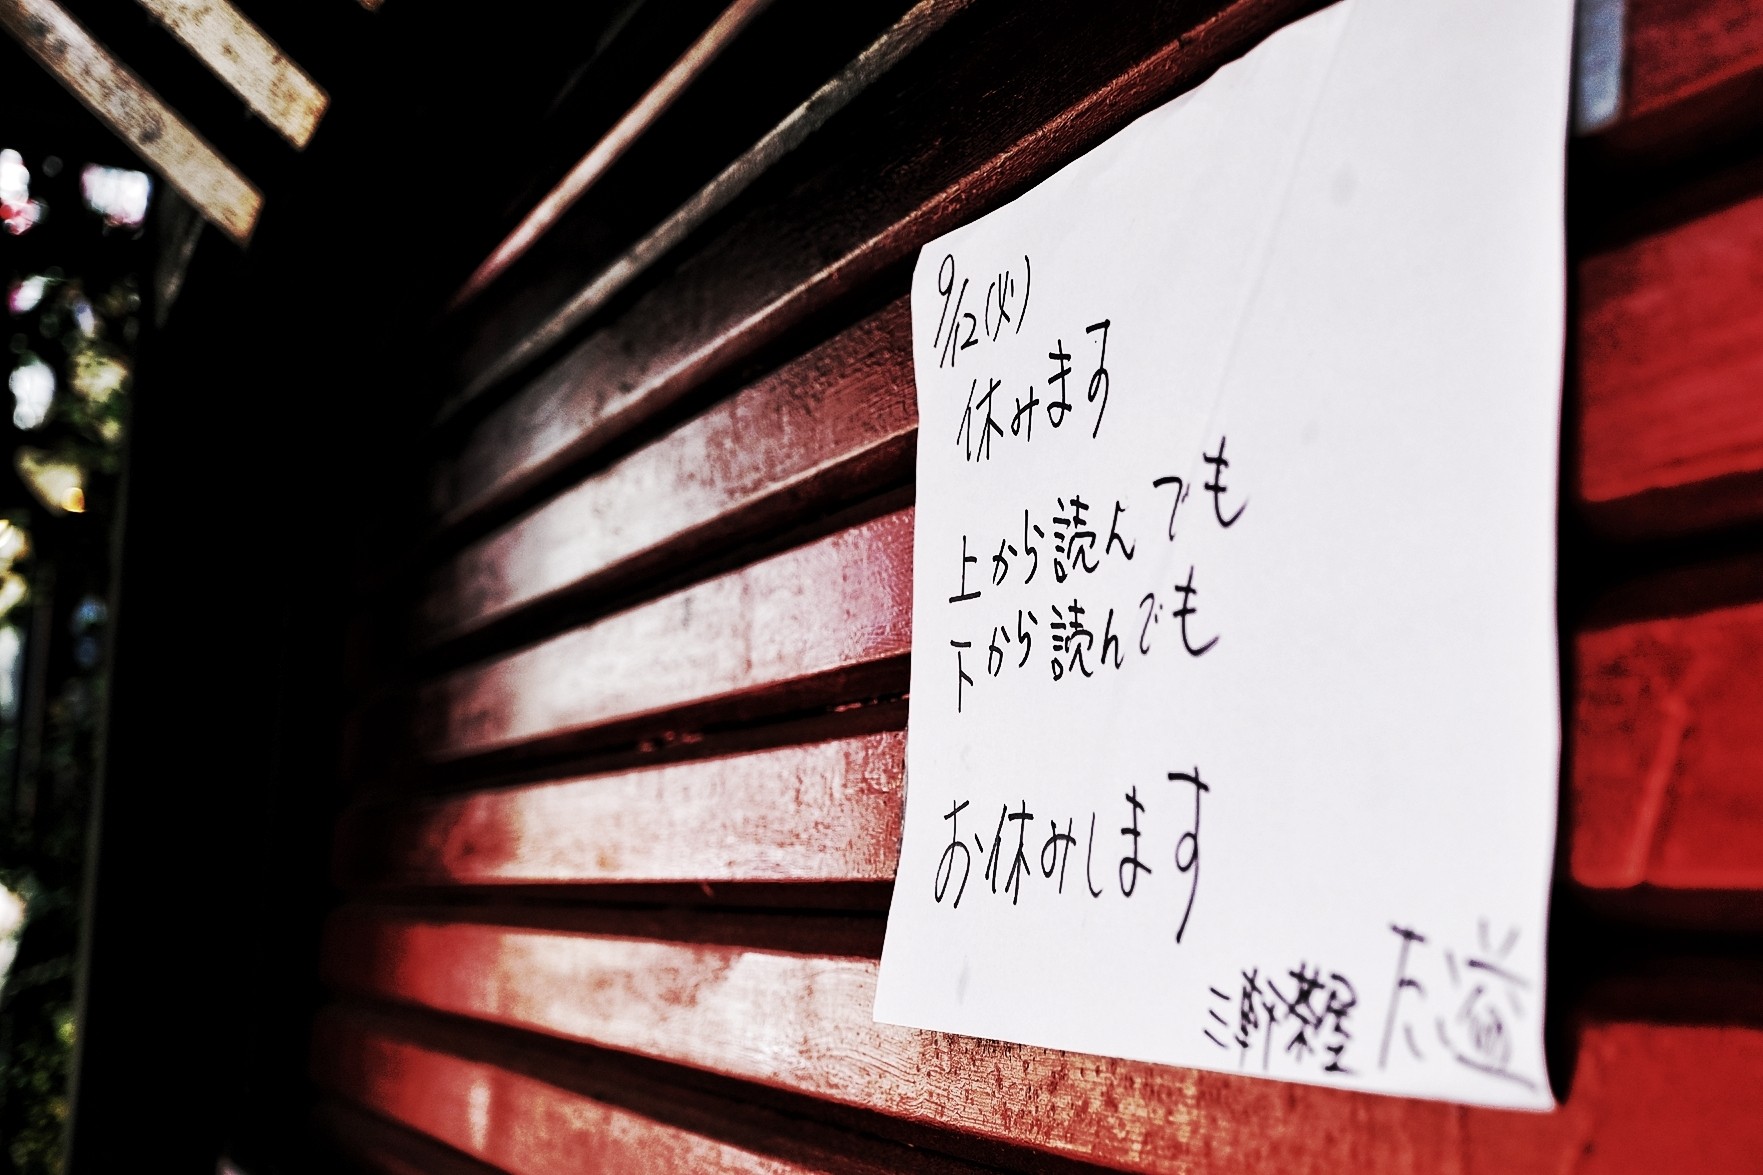 9/12(火)
休みます
上から読んでも
下から読んでも
お休みします